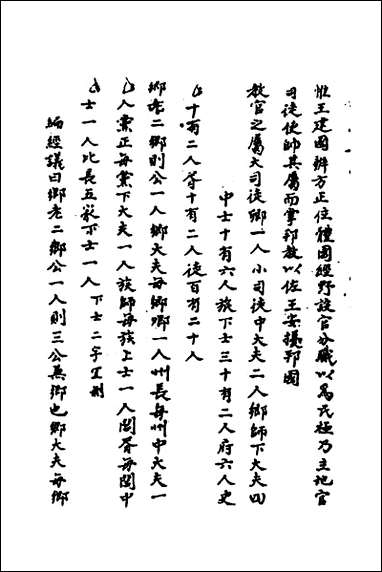 惟王建國辨方正位體國經野設官分職以為民極乃立地官
司徒使帥其屬而掌邦教以佐王安擾邦國
教官之屬大司徒卿一人小司徒中大夫二人鄉師下大夫四
中士十有六人旅下士三十有二人府六人史
十有二人胥十有二人徒百有二十人
鄉老二鄉則公一人鄉大夫每鄉卿一人州長每州中大夫一
人黨正每黨下大夫一人族師每族上士一人閭胥每閭中
士一人比長五家下士一人 下士二字宜刪
編經議曰鄉老二鄉公一人則三公兼鄉也鄉大夫每鄉